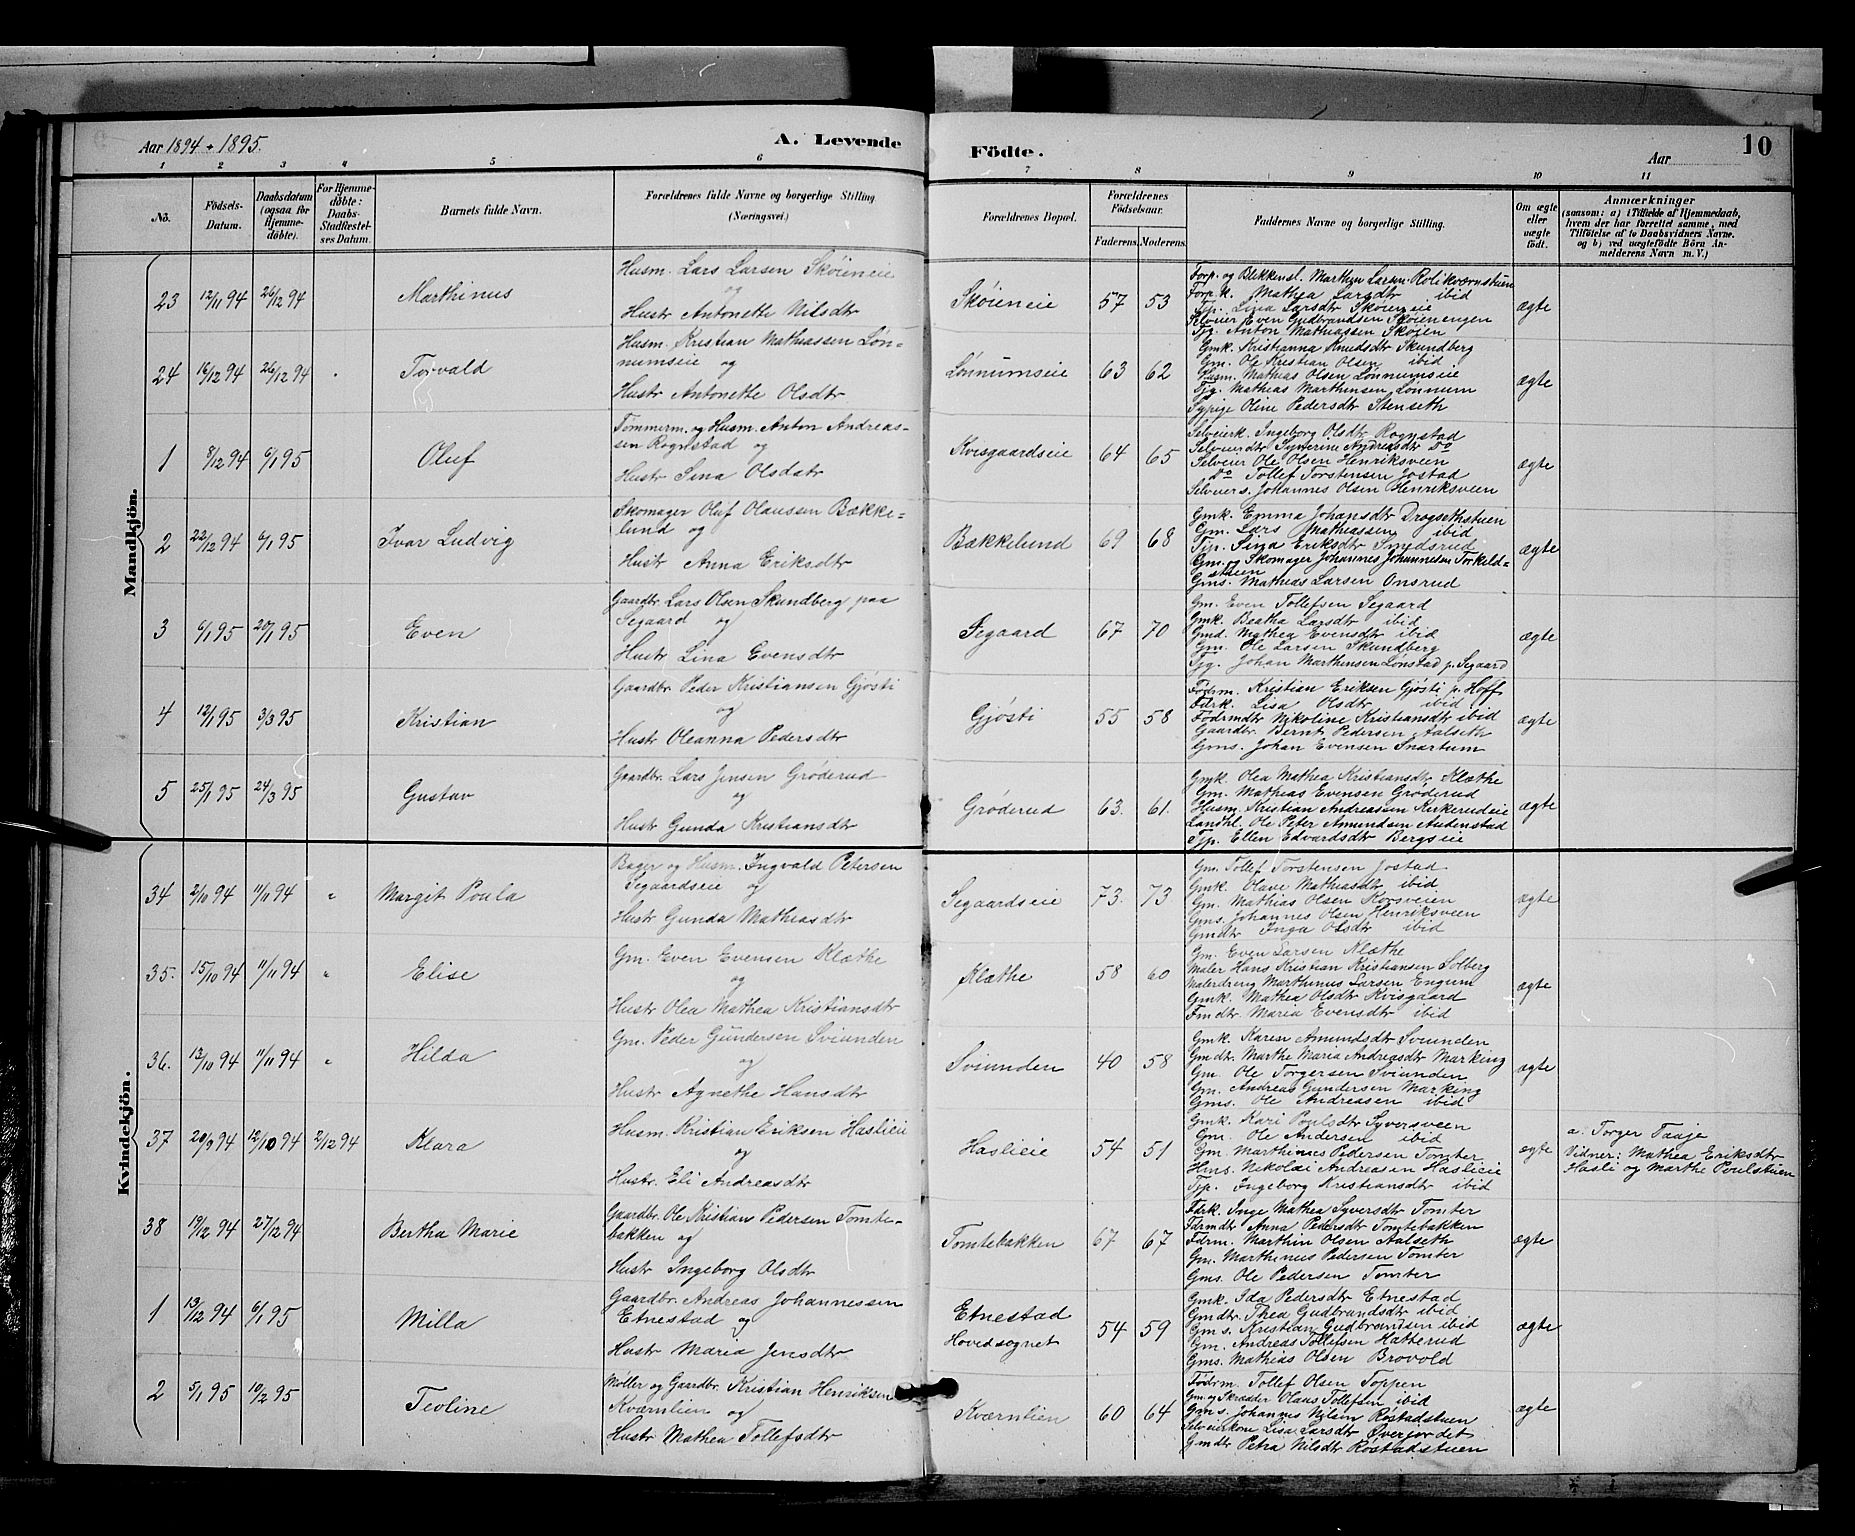 Aar 1894 + 1895.
A. Levende
Födte.
Aar
10
1 2 3 4 5 6 7 8 9 10 11
Nö.
Födsels-
Datum.
Daabsdatum
(ogsaa for
Hjemme-
döbte).
For Hjemme-
döbte:
Daabs-
Stadfæstel-
ses Datum.
Barnets fulde Navn.
Forældrenes fulde Navne og borgerlige Stilling
(Næringsvei.)
Forældrenes Bopæl.
Forældrenes
Födselsaar.
Faderens. Moderens.
Faddernes Navne og borgerlige Stilling.
Om ægte
eller
uægte
födt.
Anmærkninger
(saasom: a) i Tilfælde af Hjemmedaab,
hvem der har forrettet samme, med
Tilföielse af to Daabsvidners Navne,
og b) ved uægtefödte Börn An-
melderens Navn m. V.)
Mandkjön.
23 12/11 94 26/12 94 Marthinus
Husm. Lars Larsen Skøieneie
og
Hustr Antonette Nilsdtr
Skøieneie 57 53
Forp. og Blikkensl. Marthin Larsen Rolikværnstuen
Forp.k. Mathea Larsdtr ibid
Tjp. Lina Larsdtr Skøieneie
Selveier Even Gudbrandsen Skøienengen
Tjg. Anton Mathiassen Skøien
ægte
24 16/12 94 26/12 94 Torvald
Husm. Kristian Mathiassen Løn-
numseie og
Hustr Antonette Olsdtr
Lønnumseie 63 62
Gmk. Kristianna Knudsdtr Skundberg
Gm. Ole Kristian Olsen ibid
Husm. Mathias Olsen Lønnumseie
Tjg. Mathias Marthinsen Lønnum
Sypige Oline Pedersdtr Stenseth
ægte
1 8/12 94 6/1 95 Oluf
Tømmerm. og Husm. Anton Andreas-
sen Rognstad og
Hustr Sina Olsdatr
Kvisgaardseie 64 65
Selveierk. Ingeborg Olsdtr Rognstad
Selveierdtr Syverine Andreasdtr Do
Selveier Ole Olsen Henriksveen
Do Tollef Torstensen Jostad
Selveiers. Johannes Olsen Henriksveen
ægte
2 22/12 94 6/1 95 Ivar Ludvig
Skomager Oluf Olaussen Bække-
lund og
Hustr Anna Eriksdtr
Bækkelund 69 68
Gmk. Emma Johansdtr Drogsethstuen
Gm. Lars Mathiassen ibid
Tjp. Lina Eriksdtr Smedsrud
Gm. og Skomager Johannes Johannesen Torkeld-
stuen
Gms. Mathias Larsen Onsrud
ægte
3 6/1 95 20/1 95 Even
Gaardbr. Lars Olsen Skundberg paa
Segaard og
Hustr Lina Evensdtr
Segaard 67 70
Gm. Even Tollefsen Segaard
Gmk. Beatha Larsdtr ibid
Gmd. Mathea Evensdtr ibid
Gm. Ole Larsen Skundberg
Tjg. Johan Marthinsen Lønstad p. Segaard
ægte
4 12/1 95 3/3 95 Kristian
Gaardbr. Peder Kristiansen Gjøsti
og
Hustr Oleanna Pedersdtr
Gjøsti 55 58
Födrm. Kristian Eriksen Gjøsti p. Hoff
Fdrk. Lisa Olsdtr ibid
Födrmdtr Nikoline Kristiansdtr ibid
Gaardbr. Bernt Pedersen Aalseth
Gms. Johan Evensen Snartum
ægte
5 25/1 95 24/3 95 Gustav
Gaardbr. Lars Jensen Grøderud
og
Hustr Gunda Kristiansdtr
Grøderud 63. 61.
Gmk. Olea Mathea Kristiansdtr Klæthe
Gm. Mathias Evensen Grøderud
Husm. Kristian Andreassen Kirkerudeie
Landhl. Ole Peter Amundsen Audenstad
Tjp. Ellen Edvardsdtr Bergseie
ægte
Kvindekjön.
34 2/10 94 11/11 94 " Margit Poula
Bager og Husm. Ingvald Petersen
Segaardseie og
Hustr Gunda Mathiasdtr
Segaardseie 73. 73
Gm. Tollef Torstensen Jostad
Gmk. Olave Mathiasdtr ibid
Gm. Mathias Olsen Korsveien
Gms. Johannes Olsen Henriksveen
Gmdtr Inga Olsdtr ibid
ægte
35. 15/10 94 11/11 94 " Elise
Gm. Even Evensen Klæthe
og
Hustr Olea Mathea Kristiansdtr
Klæthe 58 60
Gm. Even Larsen Klæthe
Maler Hans Kristian Kristiansen Solberg
Malerdreng Marthinus Larsen Engum
Gmk. Mathea Olsdtr Kvisgaard
Fmdtr. Maria Evensdtr ibid
ægte
36. 13/10 94 11/11 94 " Hilda
Gm. Peder Gundersen Sviunden
og
Hustr Agnethe Hansdtr
Sviunden 40 58
Gmk. Karen Amundsdtr Sviunden
Gmdtr. Marthe Maria Andreasdtr Marking
Gm. Ole Torgersen Sviunden
Gm. Andreas Gundersen Marking
Gms. Ole Andreasen ibid
ægte
37 20/9 94 12/10 94 2/12 94 Klara
Husm. Kristian Eriksen Haslieie
og
Hustr. Eli Andreasdtr
Haslieie 54 51
Gmk. Kari Poulsdtr Syversveen
Gm. Ole Andersen ibid
Gm Marthinus Pedersen Tomter
Hms. Nikolai Andreasen Haslieie
Tjp. Ingeborg Kristiansdtr ibid
ægte
a. Torger Taaje
Vidner: Mathea Eriksdtr
Hasli og Marthe Poulstuen
38 19/12 94 27/12 94 Bertha Marie
Gaardbr. Ole Kristian Pedersen Tomte-
bakken og
Hustr Ingeborg Olsdtr
Tomtebakken 67 67
Fdrk. Inge Mathea Syversdtr Tomter
Fdrmdtr Anna Pedersdtr Tomtebakken
Fdrm. Marthin Olsen Aalseth
Gm. Marthinus Pedersen Tomter
Gms. Ole Pedersen Tomter
ægte
1 13/12 94 6/1 95 Milla
Gaardbr. Andreas Johannessen
Etnestad og
Hustr Maria Jensdtr
Etnestad
Hovedsognet 54 59
Gmk. Ida Pedersdtr Etnestad
Gmdtr. Thea Gudbrandsdtr ibid
Gms. Kristian Gudbrandsen ibid
Gm. Andreas Tollefsen Hatterud
Gms. Mathias Olsen Brovold
ægte
2 5/1 95 10/2 95 Teoline
Møller og Gaardbr. Kristian Henriksen
Kværnlien og
Hustr Mathea Tollefsdtr
Kværnlien 60 64
Födrm. Tollef Olsen Toppen
Gm. og Skrædder Olaus Tollefsen ibid
Gms. Johannes Nilsen Røstadstuen
Selveierkone Lisa Larsdtr Øverjordet
Gmdtr Petra Nilsdtr Røstadstuen
ægte